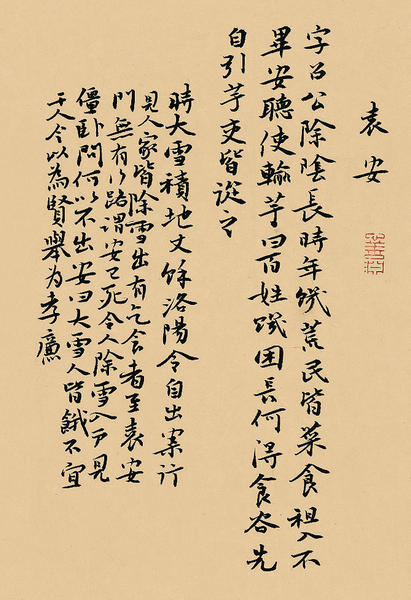 袁安
字召公除陰長時年饑荒民皆菜食租入不
畢安聽使輸芋曰百姓饑困長何得食谷先
自引芋吏皆從之
時大雪積地丈餘洛陽令自出案行
見人家皆除雪出有乞食者至袁安
門無有行路謂安已死令人除雪入戶見
僵卧問何以不出安曰大雪人皆餓不宜
干人令以為賢舉为孝廉